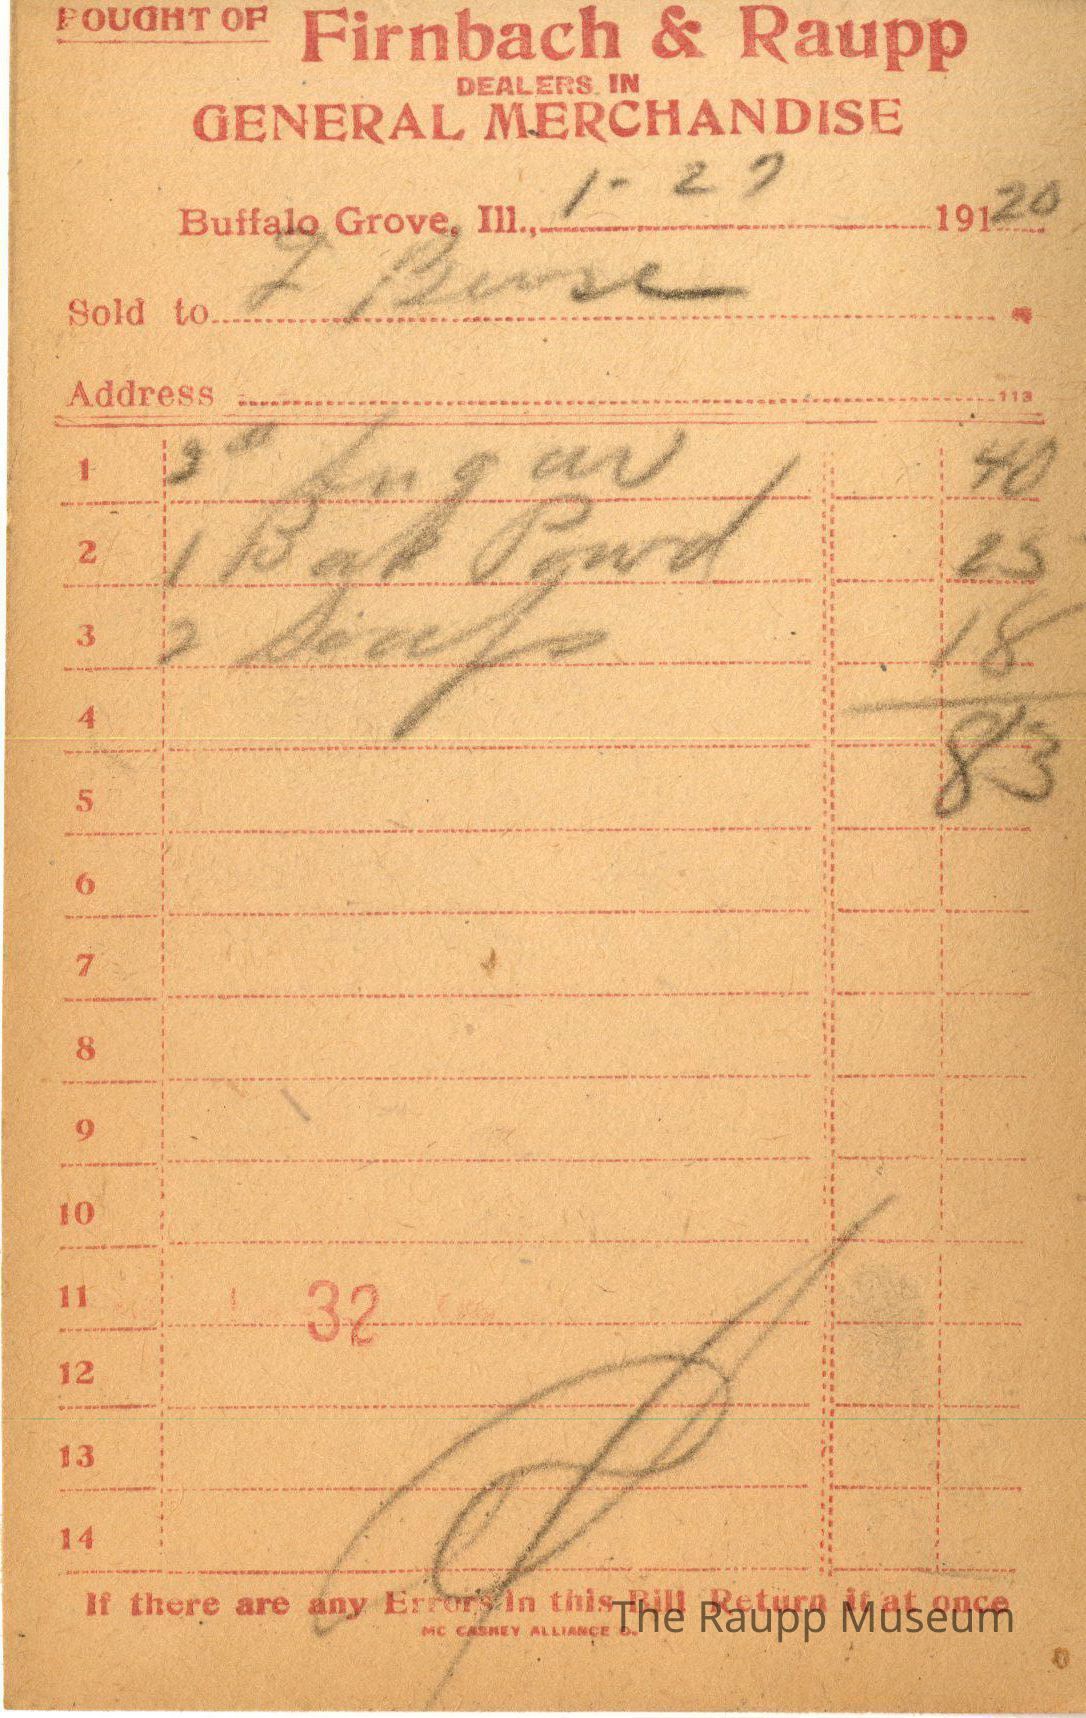 BOUGHT OF Firnbach & Raupp
DEALERS IN
GENERAL MERCHANDISE
Buffalo Grove, Ill., 1-27 191 20
Sold to
Address 113
1 Sugar 40
2 1 Bak Powd 25
3 2 Soaps 18
4 83
5
6
7
8
9
10
11 32
12
13
14
If there are any Errors in this Bill Return it at once
MC CASKEY ALLIANCE O.
The Raupp Museum